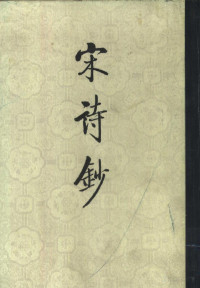 宋诗钞